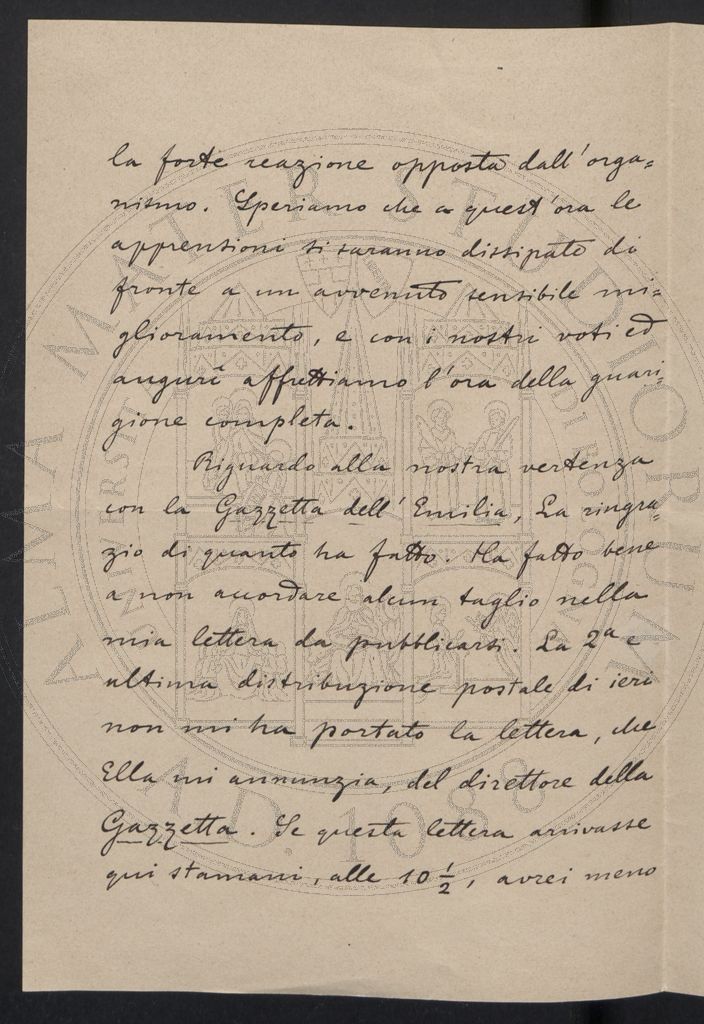 la forte reazione opposta dall'orga=
nismo. Speriamo che a quest'ora le
apprensioni si saranno dissipate di
fronte a un avvenuto sensibile mi=
glioramento, e con i nostri voti ed
augurî affrettiamo l'ora della guari=
gione completa.
Riguardo alla nostra vertenza
con la Gazzetta dell'Emilia, La ringra=
zio di quanto ha fatto. Ha fatto bene
a non accordare alcun taglio nella
mia lettera da pubblicarsi. La 2ª e
ultima distribuzione postale di ieri
non mi ha portato la lettera, che
Ella mi annunzia, del direttore della
Gazzetta. Se questa lettera arrivasse
qui stamani, alle 10 1/2, avrei meno
ALMA MATER STUDIORUM
A.D. 1088